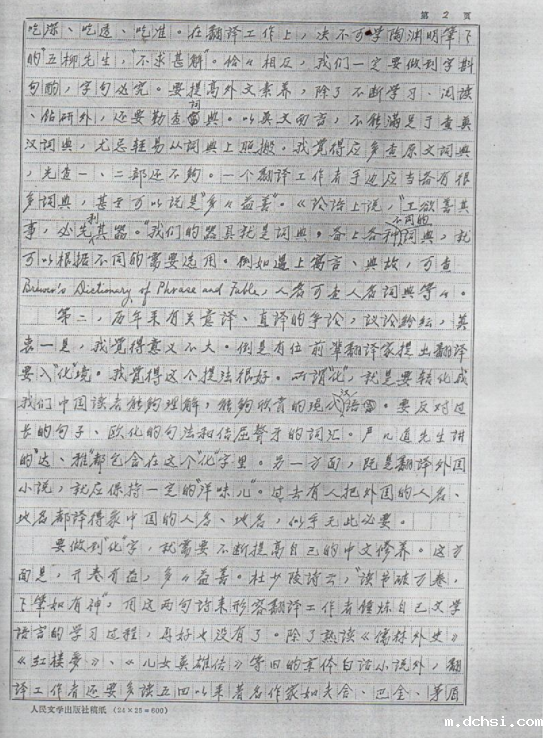 第 2 页
吃深、吃透、吃准。在翻译工作上，决不可学陶渊明笔下
的"五柳先生"，"不求甚解"。恰恰相反，我们一定要做到字斟
句酌，字句必究。要提高外文素养，除了不断学习、阅读
、钻研外，还要勤查词典。以英文而言，不能满足于查英
汉词典，尤忌轻易从词典上照搬。我觉得应多查原文词典
，光查一、二部还不够。一个翻译工作者手边应当备有很
多词典，甚至可以说是"多多益善"。《论语》上说，"工欲善其
事，必先利其器。"我们的器具就是词典。备上各种不同的词典，就
可以根据不同的需要选用。例如遇上寓言、典故，可查
Brewer's Dictionary of Phrase and Fable，人名可查人名词典等等。
第二，历年来有关意译、直译的争论，议论纷纭，莫
衷一是，我觉得意义不大。倒是有位前辈翻译家提出翻译
要入"化"境。我觉得这个提法很好。所谓"化"，就是要转化成
我们中国读者能够理解，能够欣赏的现代汉语。要反对过
长的句子、欧化的句法和佶屈聱牙的词汇。严几道先生讲
的"达、雅"都包含在这个"化"字里。另一方面，既是翻译外国
小说，就应保持一定的"洋味儿"。过去有人把外国的人名、
地名都译得象中国的人名、地名，似乎无此必要。
要做到"化"字，就需要不断提高自己的中文修养。这方
面是"开卷有益，多多益善。杜少陵诗云，"读书破万卷，
下笔如有神"，用这两句诗来形容翻译工作者锤炼自己文学
语言的学习过程，再好也没有了。除了熟读《儒林外史》
《红楼梦》、《儿女英雄传》等旧的章体白话小说外，翻
译工作者还要多读五四以来著名作家如老舍、巴金、茅盾
人民文学出版社稿纸 (24×25=600)
m.dchsi.com